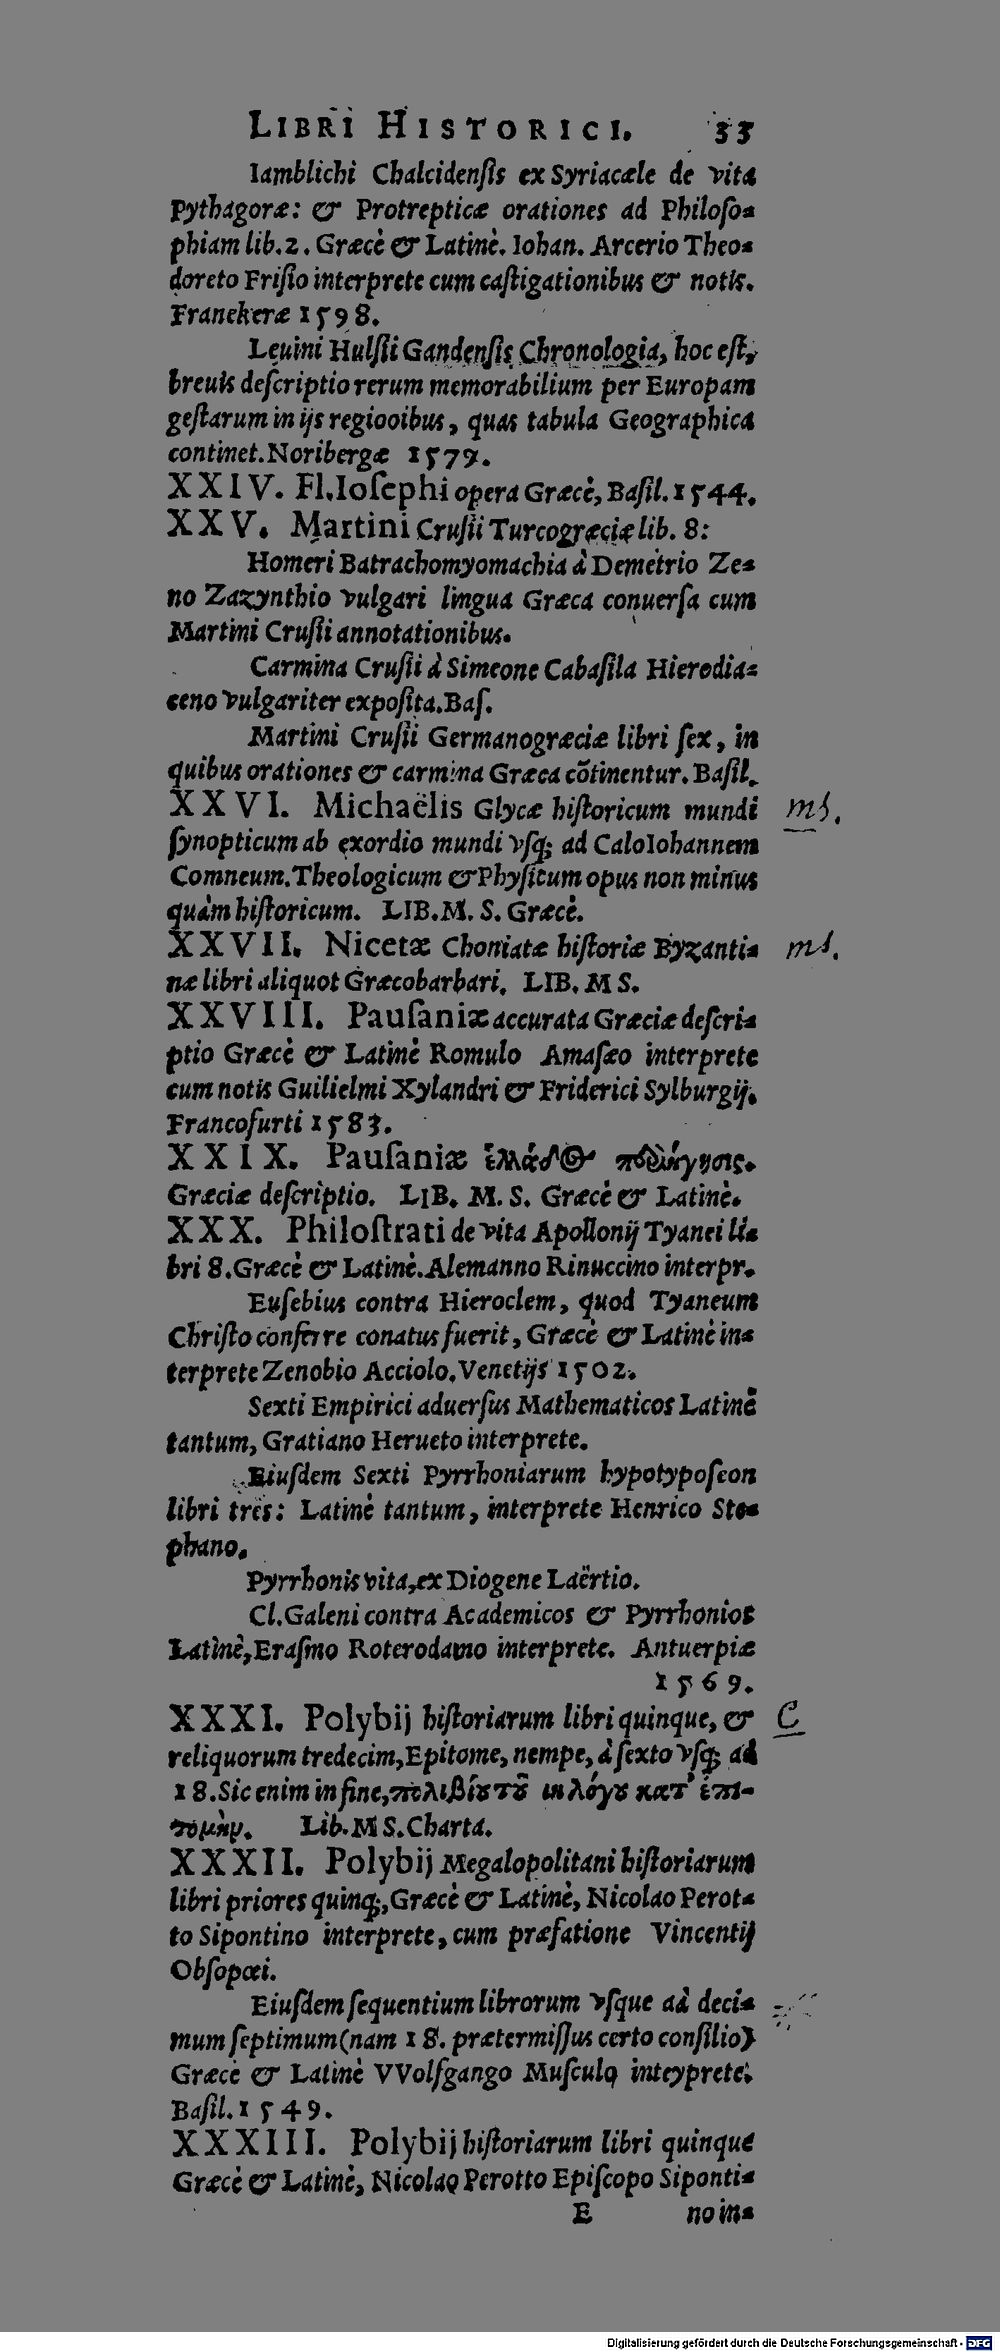 LIBRI HISTORICI. 33
Iamblichi Chalcidensis ex Syriacæle de vita
Pythagoræ: & Protrepticæ orationes ad Philoſo-
phiam lib.2. Græcè & Latinè. Iohan. Arcerio Theo-
doreto Friſio interprete cum caſtigationibus & notis.
Franekeræ 1598.
Leuini Hulſii Gandenſis Chronologia, hoc eſt,
breuis deſcriptio rerum memorabilium per Europam
geſtarum in ijs regiooibus, quas tabula Geographica
continet. Noribergæ 1579.
XXIV. Fl. Ioſephi opera Græcè, Baſil. 1544.
XXV. Martini Cruſii Turcogræciæ lib. 8:
Homeri Batrachomyomachia à Demetrio Ze-
no Zazynthio vulgari lingua Græca conuerſa cum
Martini Cruſii annotationibus.
Carmina Cruſii à Simeone Cabaſila Hierodia-
ceno vulgariter expoſita. Baſ.
Martini Cruſii Germanogræciæ libri ſex, in
quibus orationes & carmina Græca cõtinentur. Baſil.
XXVI. Michaëlis Glycæ hiſtoricum mundi ms.
ſynopticum ab exordio mundi vſq; ad CaloIohannem
Comneum. Theologicum & Phyſicum opus non minus
quàm hiſtoricum. LIB. M. S. Græcè.
XXVII. Nicetæ Choniatæ hiſtoriæ Byzanti- ms.
næ libri aliquot Græcobarbari. LIB. MS.
XXVIII. Pauſaniæ accurata Græciæ deſcri-
ptio Græcè & Latinè Romulo Amaſæo interprete
cum notis Guilielmi Xylandri & Friderici Sylburgij.
Francofurti 1583.
XXIX. Pauſaniæ ἑλλάδος περιήγησις.
Græciæ deſcriptio. LIB. M. S. Græcè & Latinè.
XXX. Philoſtrati de vita Apollonij Tyanei li-
bri 8. Græcè & Latinè. Alemanno Rinuccino interpr.
Euſebius contra Hieroclem, quod Tyaneum
Chriſto conferre conatus fuerit, Græcè & Latinè in-
terprete Zenobio Acciolo. Venetijs 1502.
Sexti Empirici aduerſus Mathematicos Latinè
tantum, Gratiano Herueto interprete.
Eiuſdem Sexti Pyrrhoniarum hypotypoſeon
libri tres: Latinè tantum, interprete Henrico Ste-
phano.
Pyrrhonis vita, ex Diogene Laërtio.
Cl. Galeni contra Academicos & Pyrrhonios
Latinè, Eraſmo Roterodamo interprete. Antuerpiæ
1569.
XXXI. Polybij hiſtoriarum libri quinque, & C
reliquorum tredecim, Epitome, nempe, à ſexto vſq; ad
18. Sic enim in fine, πολιβίου τοῦ ιη λόγου κατ' ἐπι-
τομὴν. Lib. MS. Charta.
XXXII. Polybij Megalopolitani hiſtoriarum
libri priores quinq;, Græcè & Latinè, Nicolao Perot-
to Sipontino interprete, cum præfatione Vincentij
Obſopœi.
Eiuſdem ſequentium librorum vſque ad deci-
mum ſeptimum (nam 18. prætermiſſus certo conſilio)
Græcè & Latinè VVolfgango Muſculo inteyprete.
Baſil. 1549.
XXXIII. Polybij hiſtoriarum libri quinque
Græcè & Latinè, Nicolao Perotto Epiſcopo Siponti-
E no in-
Digitalisierung gefördert durch die Deutsche Forschungsgemeinschaft - DFG